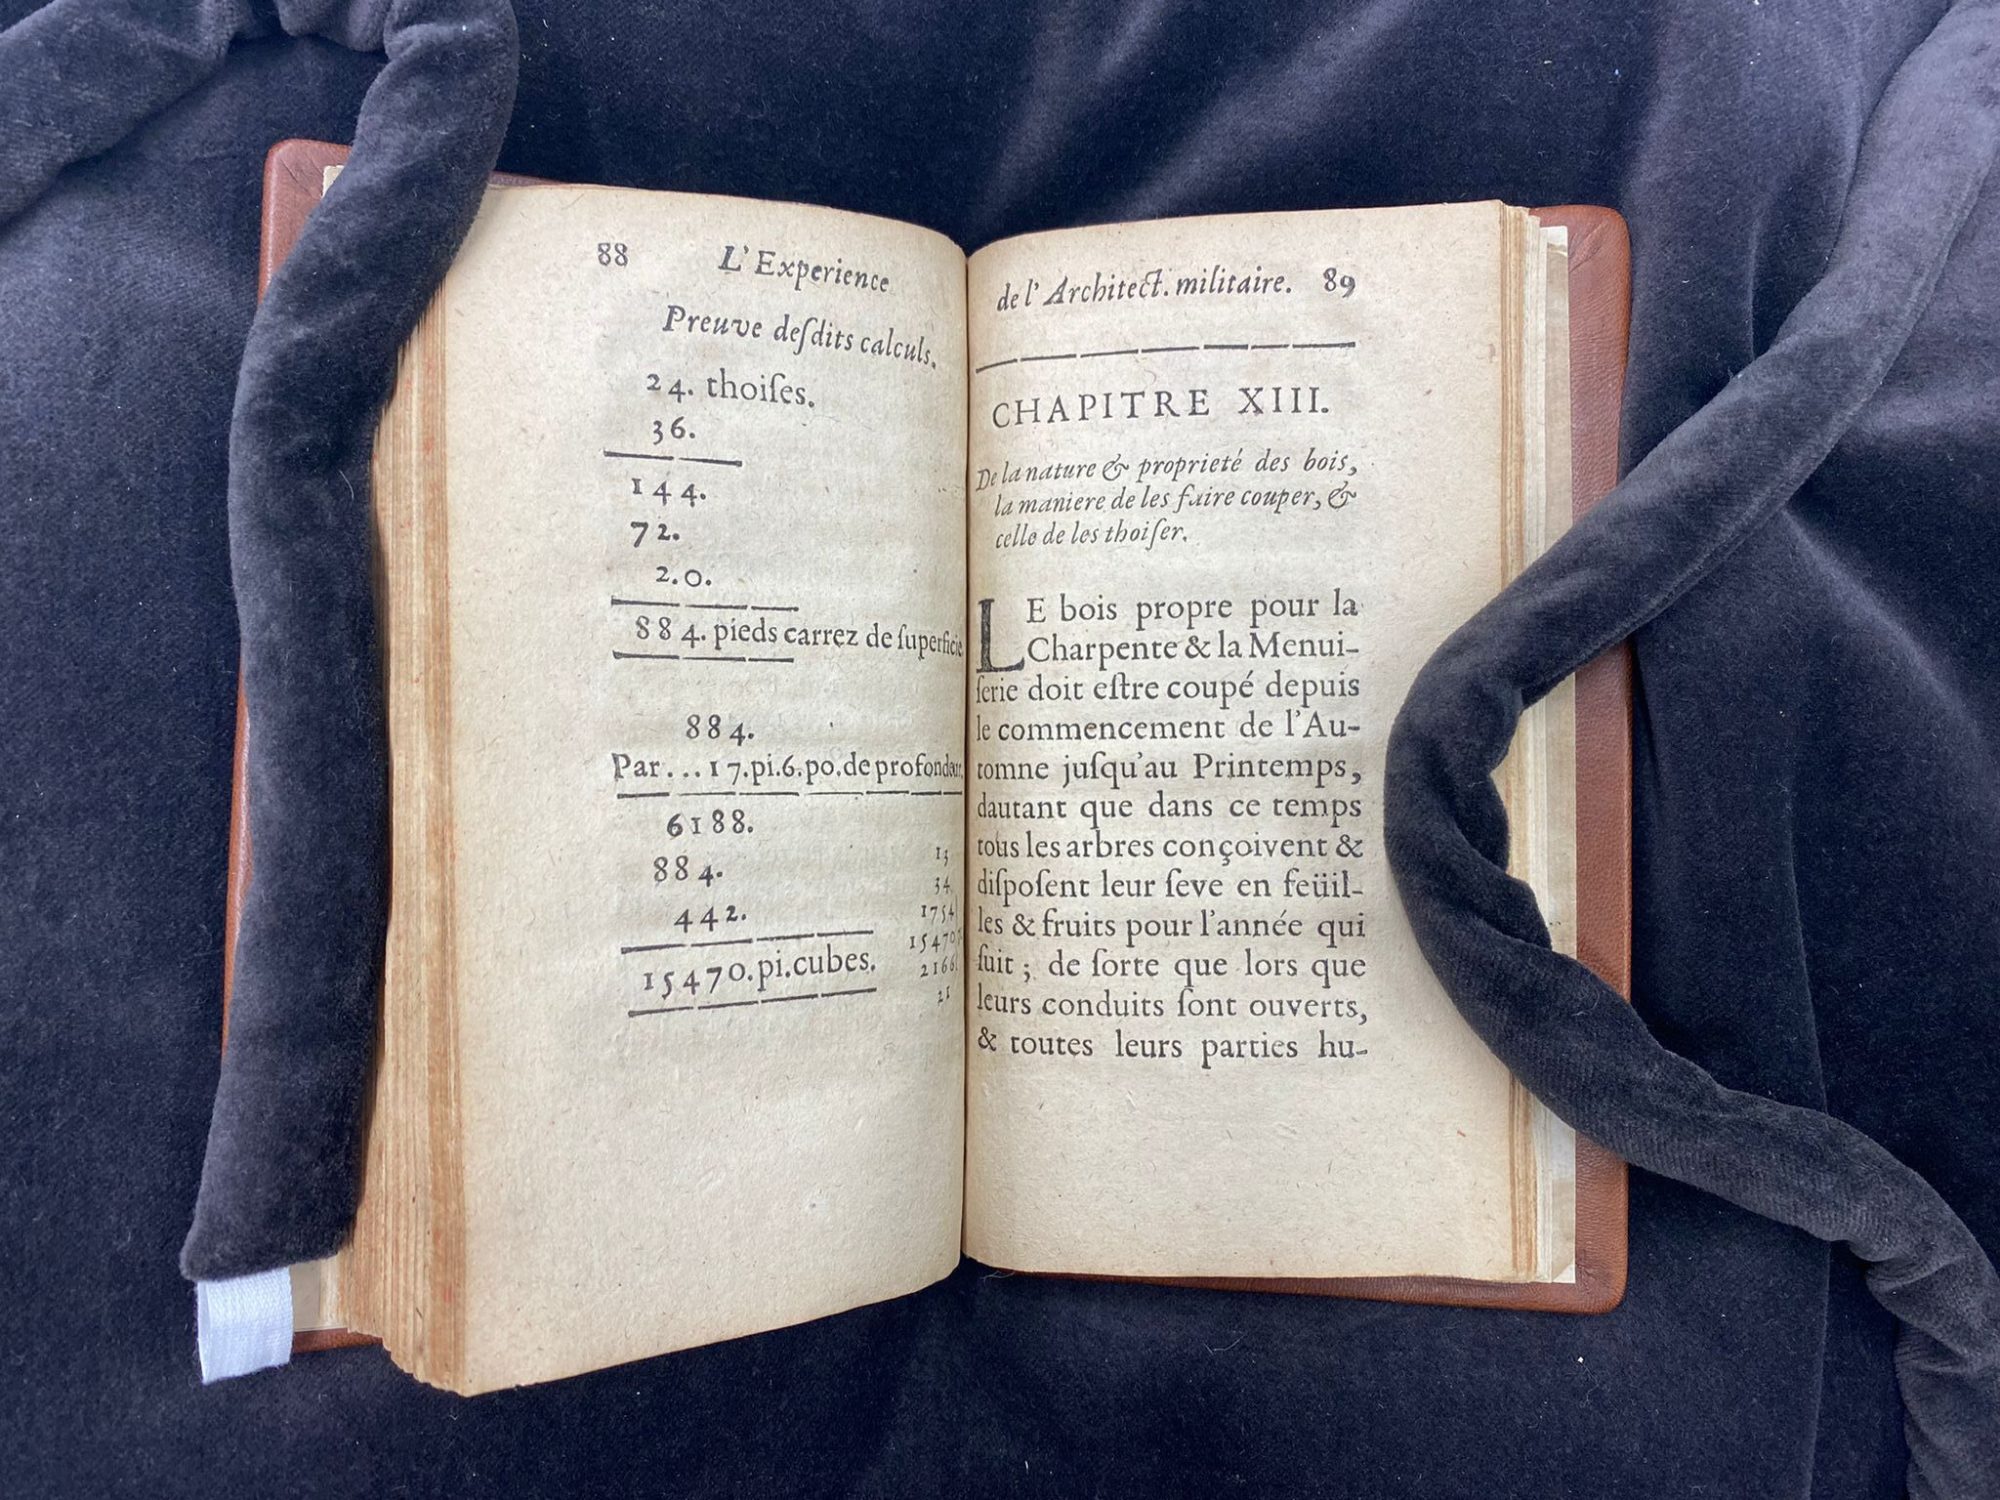 88 L'Experience
Preuve deſdits calculs.
24. thoiſes.
36.
144.
72.
2.0.
884. pieds carrez de ſuperficie
884.
Par...17.pi.6.po.de profondeur.
6188.
884.
442.
15470.pi.cubes.
13
34
1754
15470
2166
21
de l'Architect. militaire. 89
CHAPITRE XIII.
De la nature & proprieté des bois,
la maniere de les faire couper, &
celle de les thoiſer.
LE bois propre pour la
Charpente & la Menui-
ſerie doit eſtre coupé depuis
le commencement de l'Au-
tomne juſqu'au Printemps,
dautant que dans ce temps
tous les arbres conçoivent &
diſpoſent leur ſeve en feüil-
les & fruits pour l'année qui
ſuit ; de ſorte que lors que
leurs conduits ſont ouverts,
& toutes leurs parties hu-